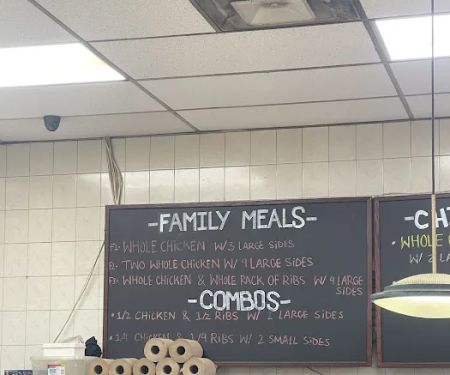 -FAMILY MEALS-
F1- WHOLE CHICKEN W/3 LARGE SIDES
F2- TWO WHOLE CHICKEN W/ 4 LARGE SIDES
F3- WHOLE CHICKEN & WHOLE RACK OF RIBS W/ 4 LARGE
SIDES
-COMBOS-
•1/2 CHICKEN & 1/2 RIBS W/ 2 LARGE SIDES
•1/4 CHICKEN & 1/4 RIBS W/ 2 SMALL SIDES
WHOLE
W/ 2